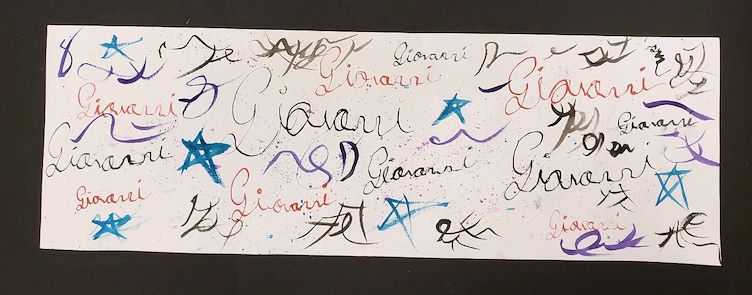 Giovanni
Giovanni
Giovanni
Giovanni
Giovanni
Giovanni
Giovanni
Giovanni
Giovanni
Giovanni
Giovanni
Giovanni